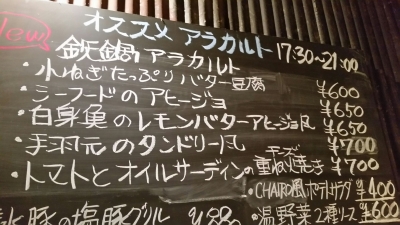 New
オススメ アラカルト 17:30~21:00
鉄鍋 アラカルト
・小ねぎたっぷりバター豆腐 ¥600
・シーフードのアヒージョ ¥650
・白身魚のレモンバターアヒージョ風 ¥650
・手羽元のタンドリー風 ¥700
・トマトとオイルサーディンのチーズ重ね焼き ¥700
・CHAIRO風ポテトサラダ ¥400
豚の塩豚グリル
・温野菜2種ソース ¥600